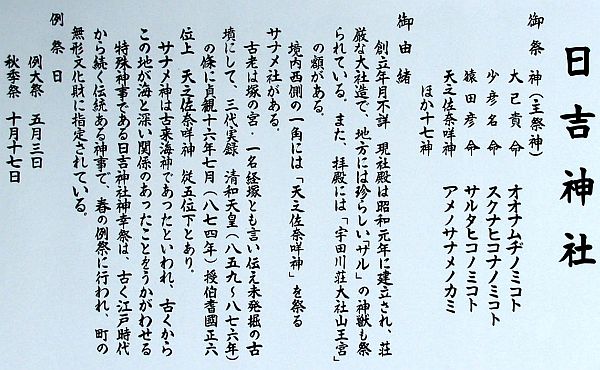 日吉神社
御祭神(主祭神)
大己貴命 オオナムヂノミコト
少彦名命 スクナヒコナノミコト
猿田彦命 サルタヒコノミコト
天之佐奈咩神 アメノサナメノカミ
ほか十七神
御由緒
創立年月不詳 現社殿は昭和元年に建立され、荘
厳な大社造で、地方には珍らしい「ザル」の神獣も祭
られている。また、拝殿には「宇田川荘大社山王宮」
の額がある。
境内西側の一角には「天之佐奈咩神」を祭る
サナメ社がある。
古老は塚の宮・一名経塚とも言い伝え未発掘の古
墳にして、三代実録 清和天皇(八五九~八七六年)
の條に貞観十六年七月(八七四年)授伯耆國正六
位上 天之佐奈咩神 従五位下とあり。
サナメ神は古来海神であったといわれ、古くから
この地が海と深い関係のあったことをうかがわせる
特殊神事である日吉神社神幸祭は、古く江戸時代
から続く伝統ある神事で、春の例祭に行われ、町の
無形文化財に指定されている。
例祭日
例大祭 五月三日
秋季祭 十月十七日